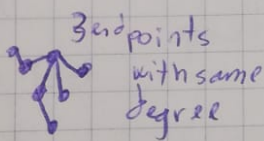 3 endpoints
with same
degree